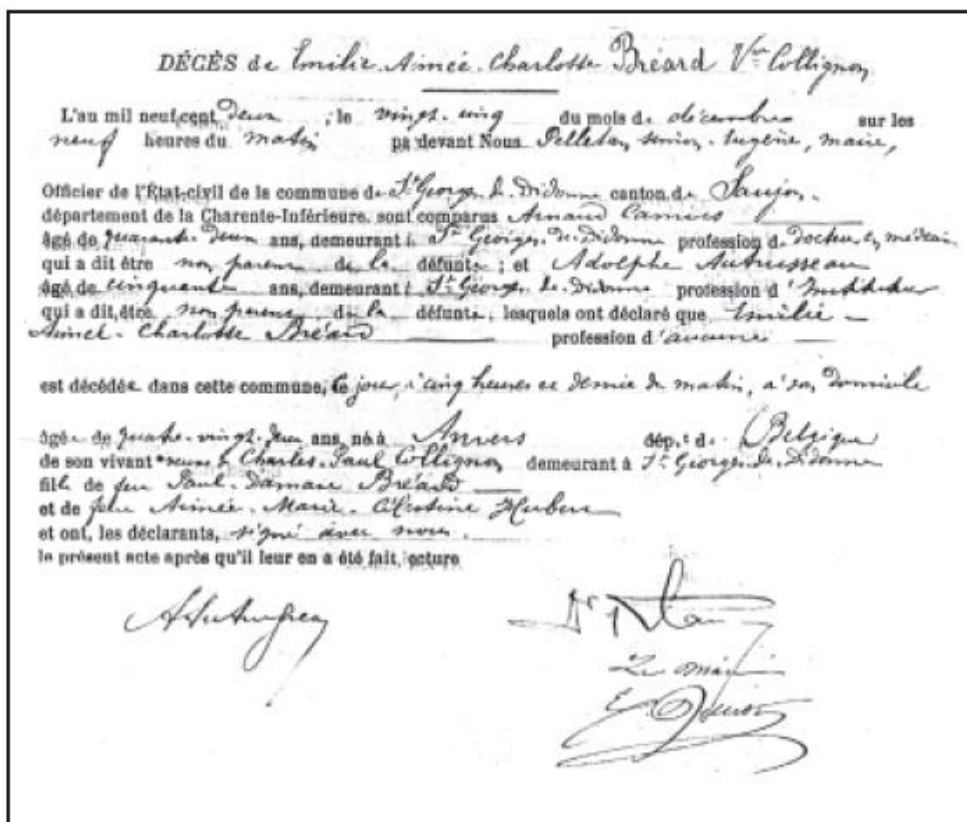 DÉCÈS de Emilie Aimée Charlotte Bréard Vve Collignon
L'an mil neuf cent deux ; le vingt-cinq du mois de décembre sur les
neuf heures du matin pa devant Nous Pelletan Eugène, maire,
Officier de l'État-civil de la commune de St Georges de Didonne canton de Saujon
département de la Charente-Inférieure. sont comparus Arnaud
âgé de quarante deux ans, demeurant à St Georges de Didonne profession d. docteur en médecin
qui a dit être non parent de la défunte ; et Adolphe Autrusseau
âgé de cinquante ans, demeurant à St Georges de Didonne profession d'Instituteur
qui a dit être non parent de la défunte, lesquels ont déclaré que Emilie
Aimée Charlotte Bréard profession d'aucune
est décédée dans cette commune, ce jour, à cinq heures et demie du matin, à son domicile
âgée de quatre-vingt-deux ans, né à Anvers dép.t d. Belgique
de son vivant veuve d Charles Paul Collignon demeurant à St Georges de Didonne
fille de feu Paul Bréard
et de feue Aimée Marie Célestine Hubert
et ont, les déclarants, signé avec nous
le présent acte après qu'il leur en a été fait lecture
Dr
Le maire